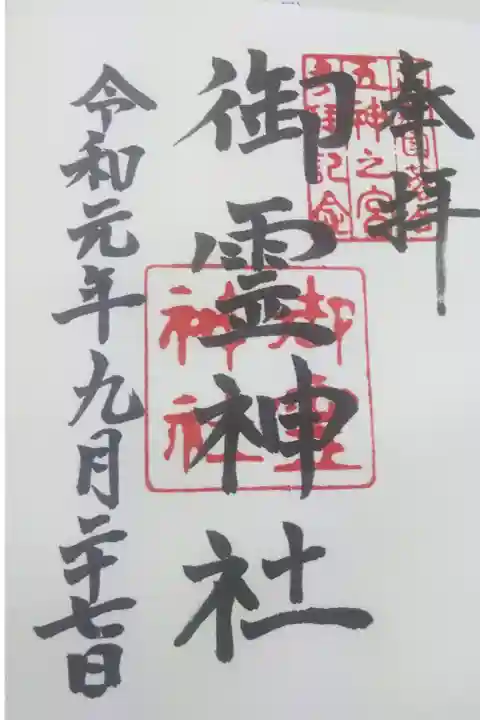 奉拝
五神之宮
参拝記念
御霊神社
御霊
神社
令和元年九月二十七日